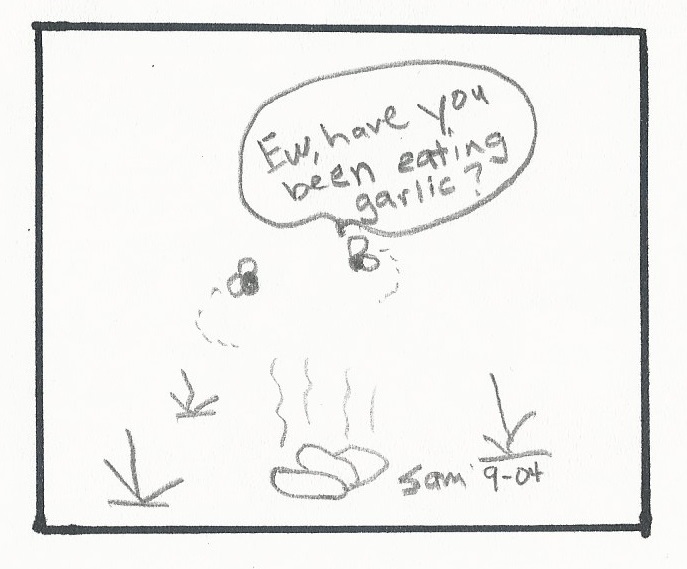 Ew, have you
been eating
garlic?
Sam 9-04